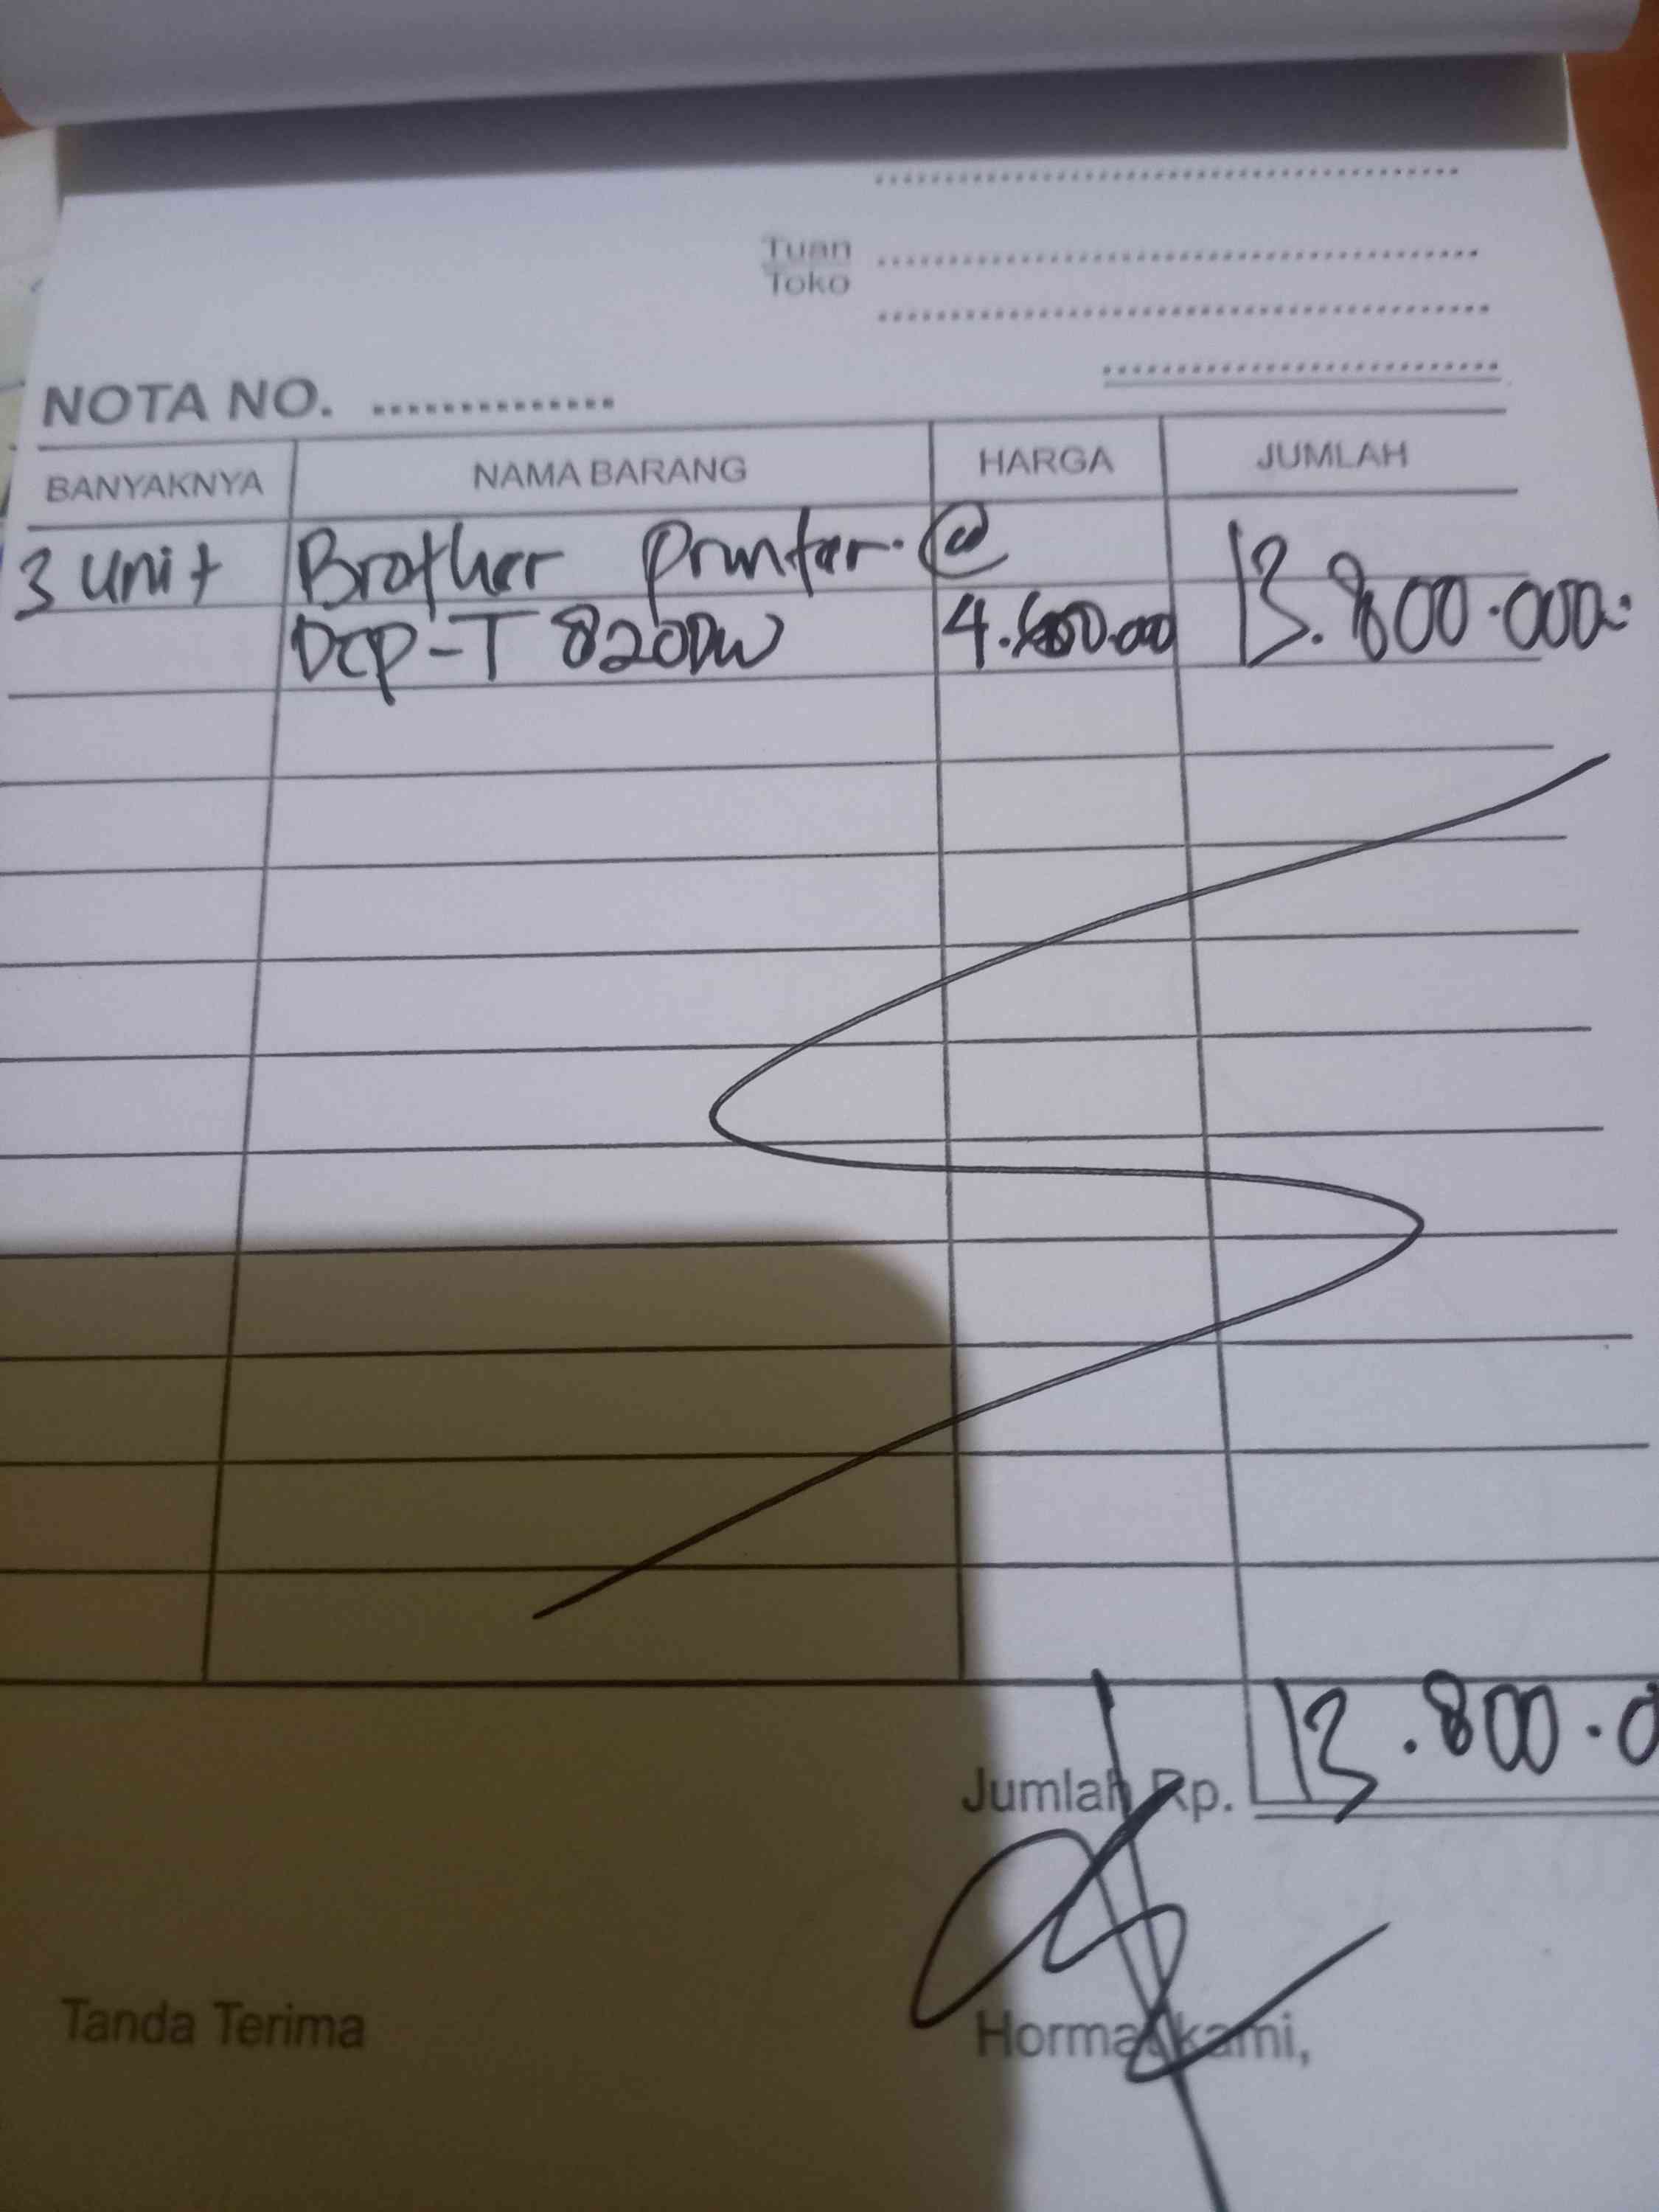 Tuan
Toko
NOTA NO. ..............
BANYAKNYA NAMA BARANG HARGA JUMLAH
3 unit Brother Printer. @ 13.800.000.-
DCP-T 820DW
Jumlah Rp. 13.800.0
Tanda Terima Hormat kami,